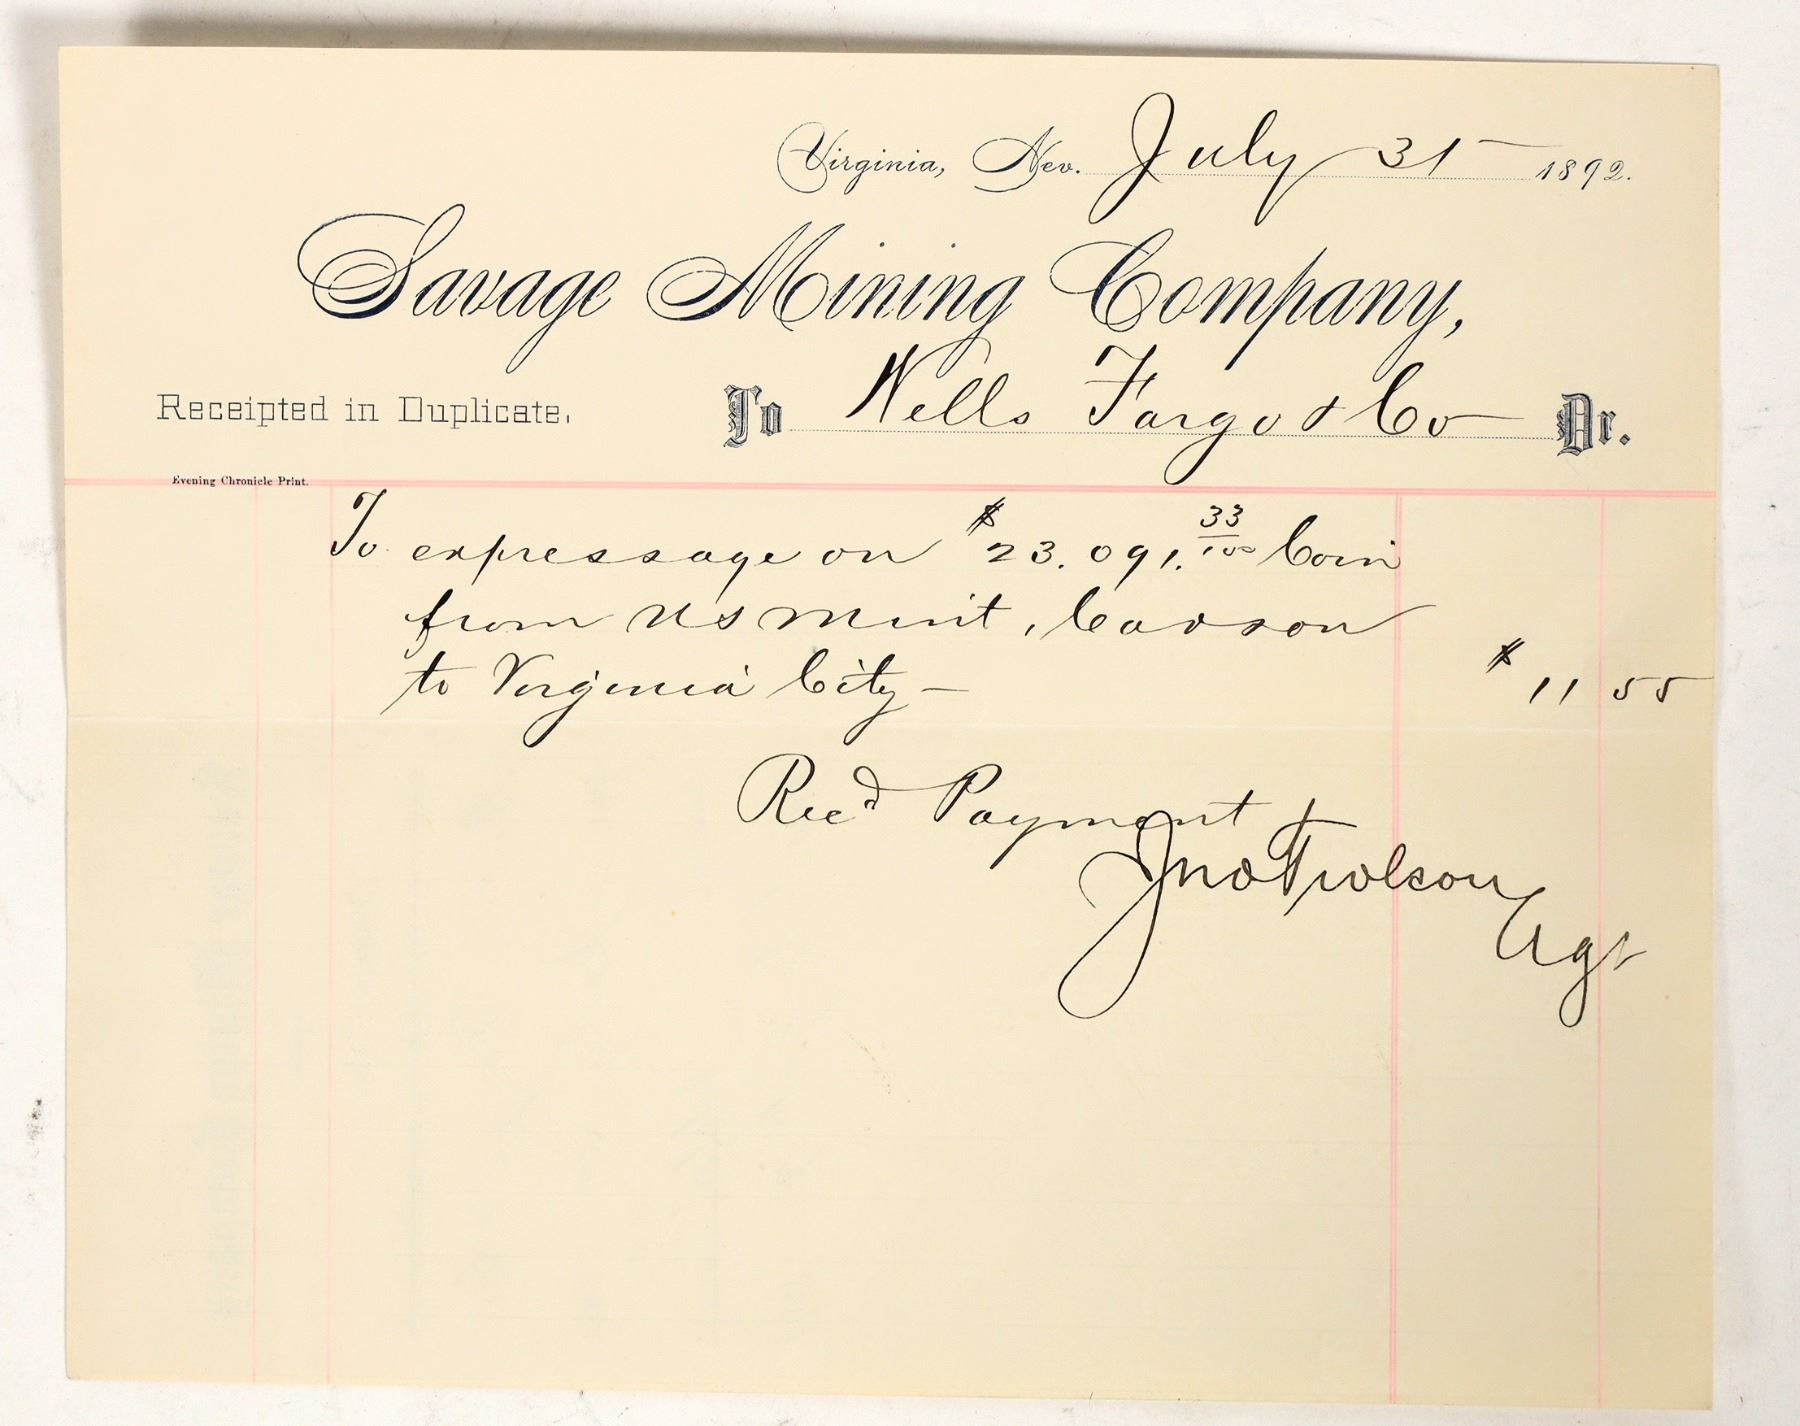 Virginia, Nev. July 31 1892.
Savage Mining Company,
Receipted in Duplicate. To Wells Fargo & Co Dr.
Evening Chronicle Print.
To expressage on $23.091.33/100 Coin
from US Mint, Carson
to Virginia City — $11 55
Rec'd Payment
Jno Agt